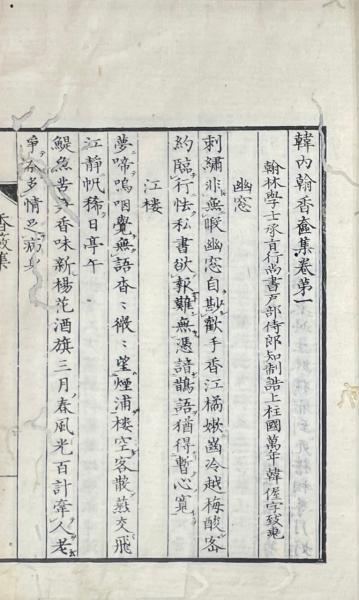 韓內翰香奩集卷第一
翰林學士承旨行尚書戶部侍郎知制誥上柱國萬年韓偓字致堯
幽窓
刺繡非無暇幽窓自尠歡手香江橘嫩齒冷越梅酸密
約臨行怯私書欲報難無憑諳鵲語猶得暫心寛
江樓
夢啼嗚咽覺無語杳〻微〻望煙浦樓空客散燕交飛
江靜帆稀日亭午
鯷魚苦笋香味新楊花酒旗三月春風光百計牽人老
爭奈多情是病身
香奩集